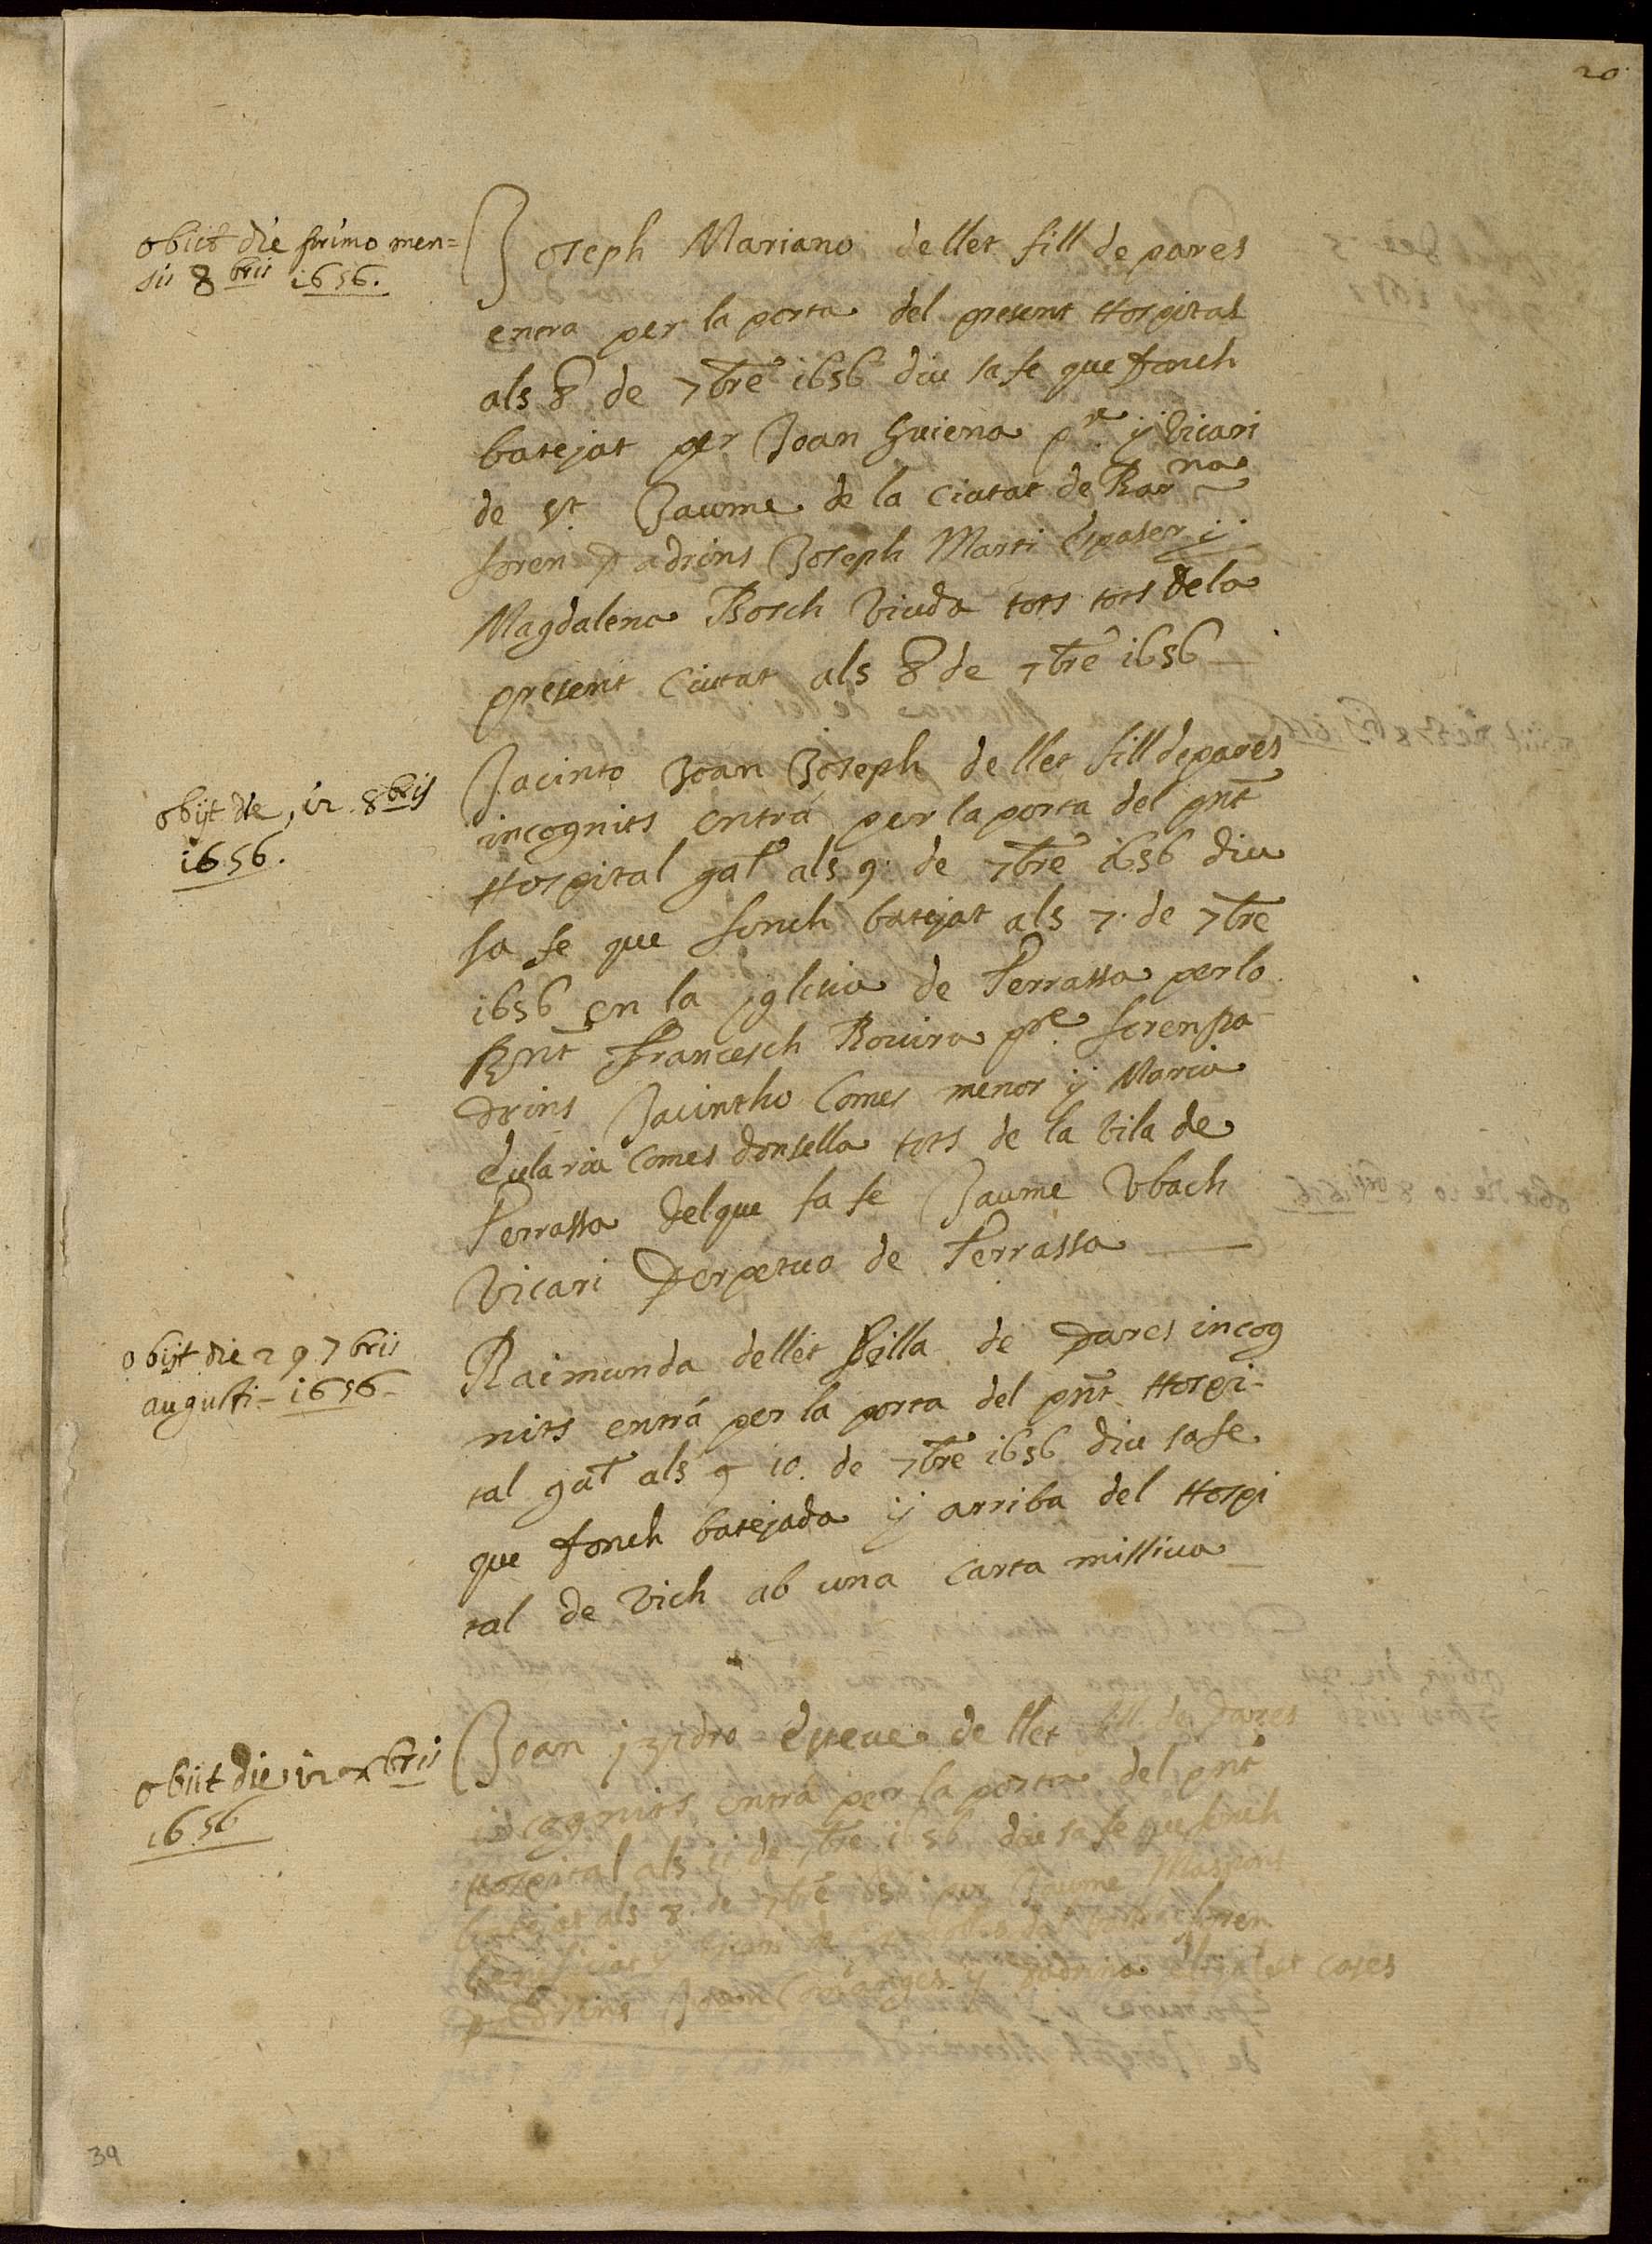 20
obiit die primo men=
sis 8bris 1656.
Joseph Mariano de llet fill de pares
entra per la porta del present Hospital
als 8 de 7bre 1656 diu sa fe que fonch
batejat per Joan Guiena pre. y Vicari
de St. Jaume de la Ciutat de Barna
foren Padrins Joseph Marti Espaser y
Magdalena Bosch Viuda tots tots de la
present Ciutat als 8 de 7bre 1656
obijt die, 12 8bris
1656.
Jacinto Joan Joseph de llet fill de pares
incognits entrá per la porta del pnt
Hospital gal als 9. de 7bre 1656 diu
sa fe que fonch batejat als 7. de 7bre
1656 en la yglesia de Terrassa per lo
Rnt Francesch Rouira pre. foren pa-
drins Jacintho Comes menor y Maria
Eularia Comes donsella tots de la Vila de
Terrassa del que fa fe Jaume Ubach
Vicari Perpetuo de Terrassa
obijt die 29 7bris
augusti - 1656 -
Raimunda de llet filla de Pares incog
nits entrá per la porta del pnt Hospi-
tal gal als 9 10. de 7bre 1656 diu sa fe
que fonch batejada y arriba del Hospi
tal de Vich ab una carta missiua
obiit die 12 xbris
1656
Joan yzidro Esteue de llet fill de Pares
incognits entrá per la porta del pnt
Hospital als 11 de 7bre 1656 diu sa fe que fonch
batejat als 8. de 7bre per Jaume Maspons
beneficiat y foren
padrins Joan y padrina cases
39